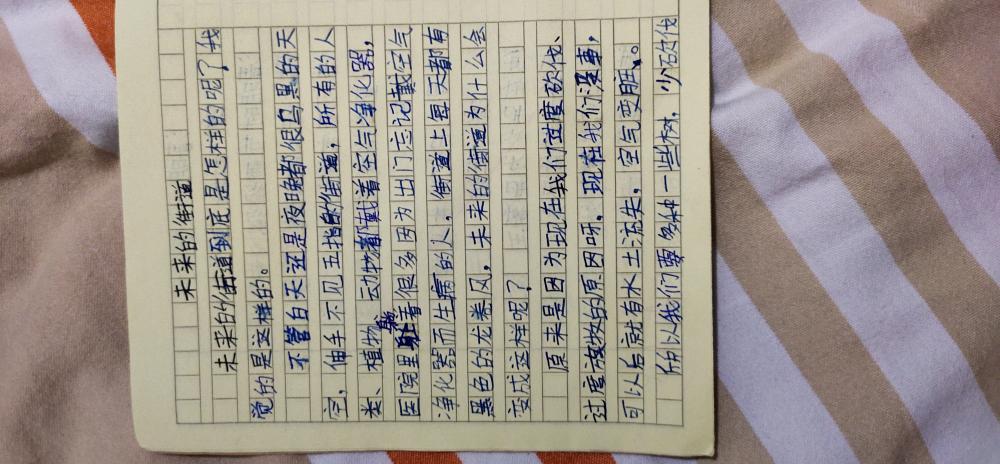 未来的街道
未来的街道到底是怎样的呢了我
觉的是这样的。
不管白天还是夜晚都很乌黑的天
空，伸手不见五指的街道，所有的人
类、植物、动物都戴着空气净化器，
医院里躺着很多因为出门忘记戴空气
净化器而生病的人，街道上每天都有
黑色的龙卷风，未来的街道为什么会
变成这样呢？
原来是因为现在我们过度砍伐、
过度放牧的原因呀，现在我们没事，
可以后就有水土流失，空气变脏、。
所以我们要多种一些树，少砍伐